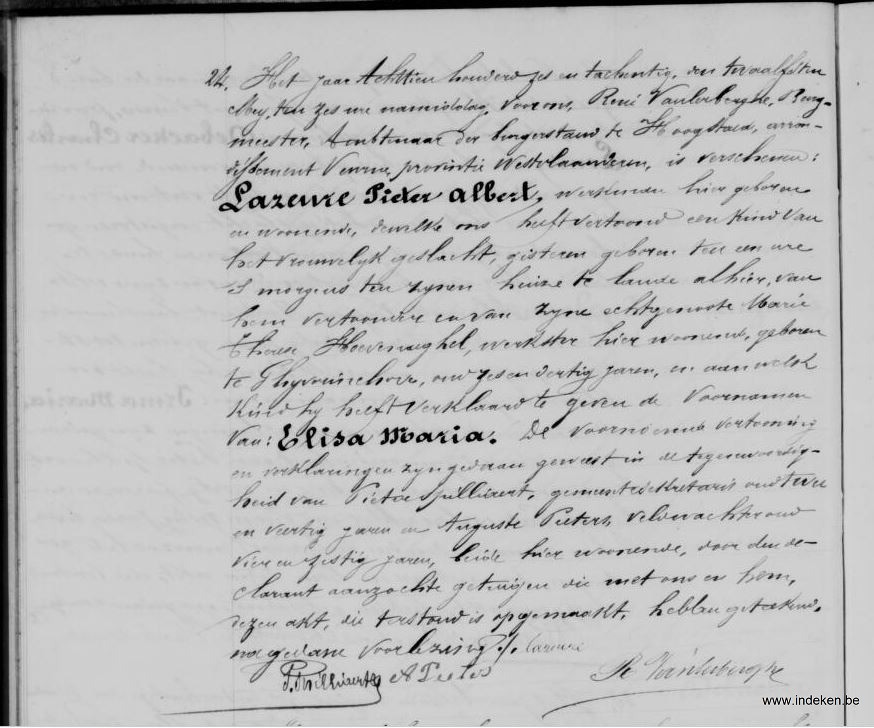 24. Het jaar Achttien honderd zes en tachentig, den twaalfsten
Mey, ten zes ure namiddag, voor ons, René Vanlerberghe, Burg-
meester, Ambtenaar der burgerstand te Hoogstade, arron-
dissement Veurne, provintie Westvlaanderen, is verschenen:
Lazeure Pieter Albert, werkman hier geboren
en woonende, dewelke ons heeft vertoond een kind van
het vrouwelyk geslacht, gisteren geboren ten een ure
's morgens ten zynen huize te lande alhier, van
hem vertooner en van zyne echtgenoote Marie
Therese Hoevenaeghel, werkster hier woonende, geboren
te Ghyverinchove, oud zes en dertig jaren, en aan welk
kind hy heeft verklaard te geven de voornamen
van: Elisa Maria. De voornoemde vertooning
en verklaringen zyn gedaan geweest in de tegenwoordig-
heid van Pieter Spilliaert, gemeentesekretaris oud twee
en veertig jaren en Auguste Pieters, veldwachter oud
vier en zestig jaren, beide hier woonende, door den de-
clarant aanzochte getuigen die met ons en hem,
dezen akt, die terstond is opgemaakt, hebben geteekend,
na gedane voorlezing. Lazeure
P. Spilliaert A Pieters R Vanlerberghe
www.indeken.be